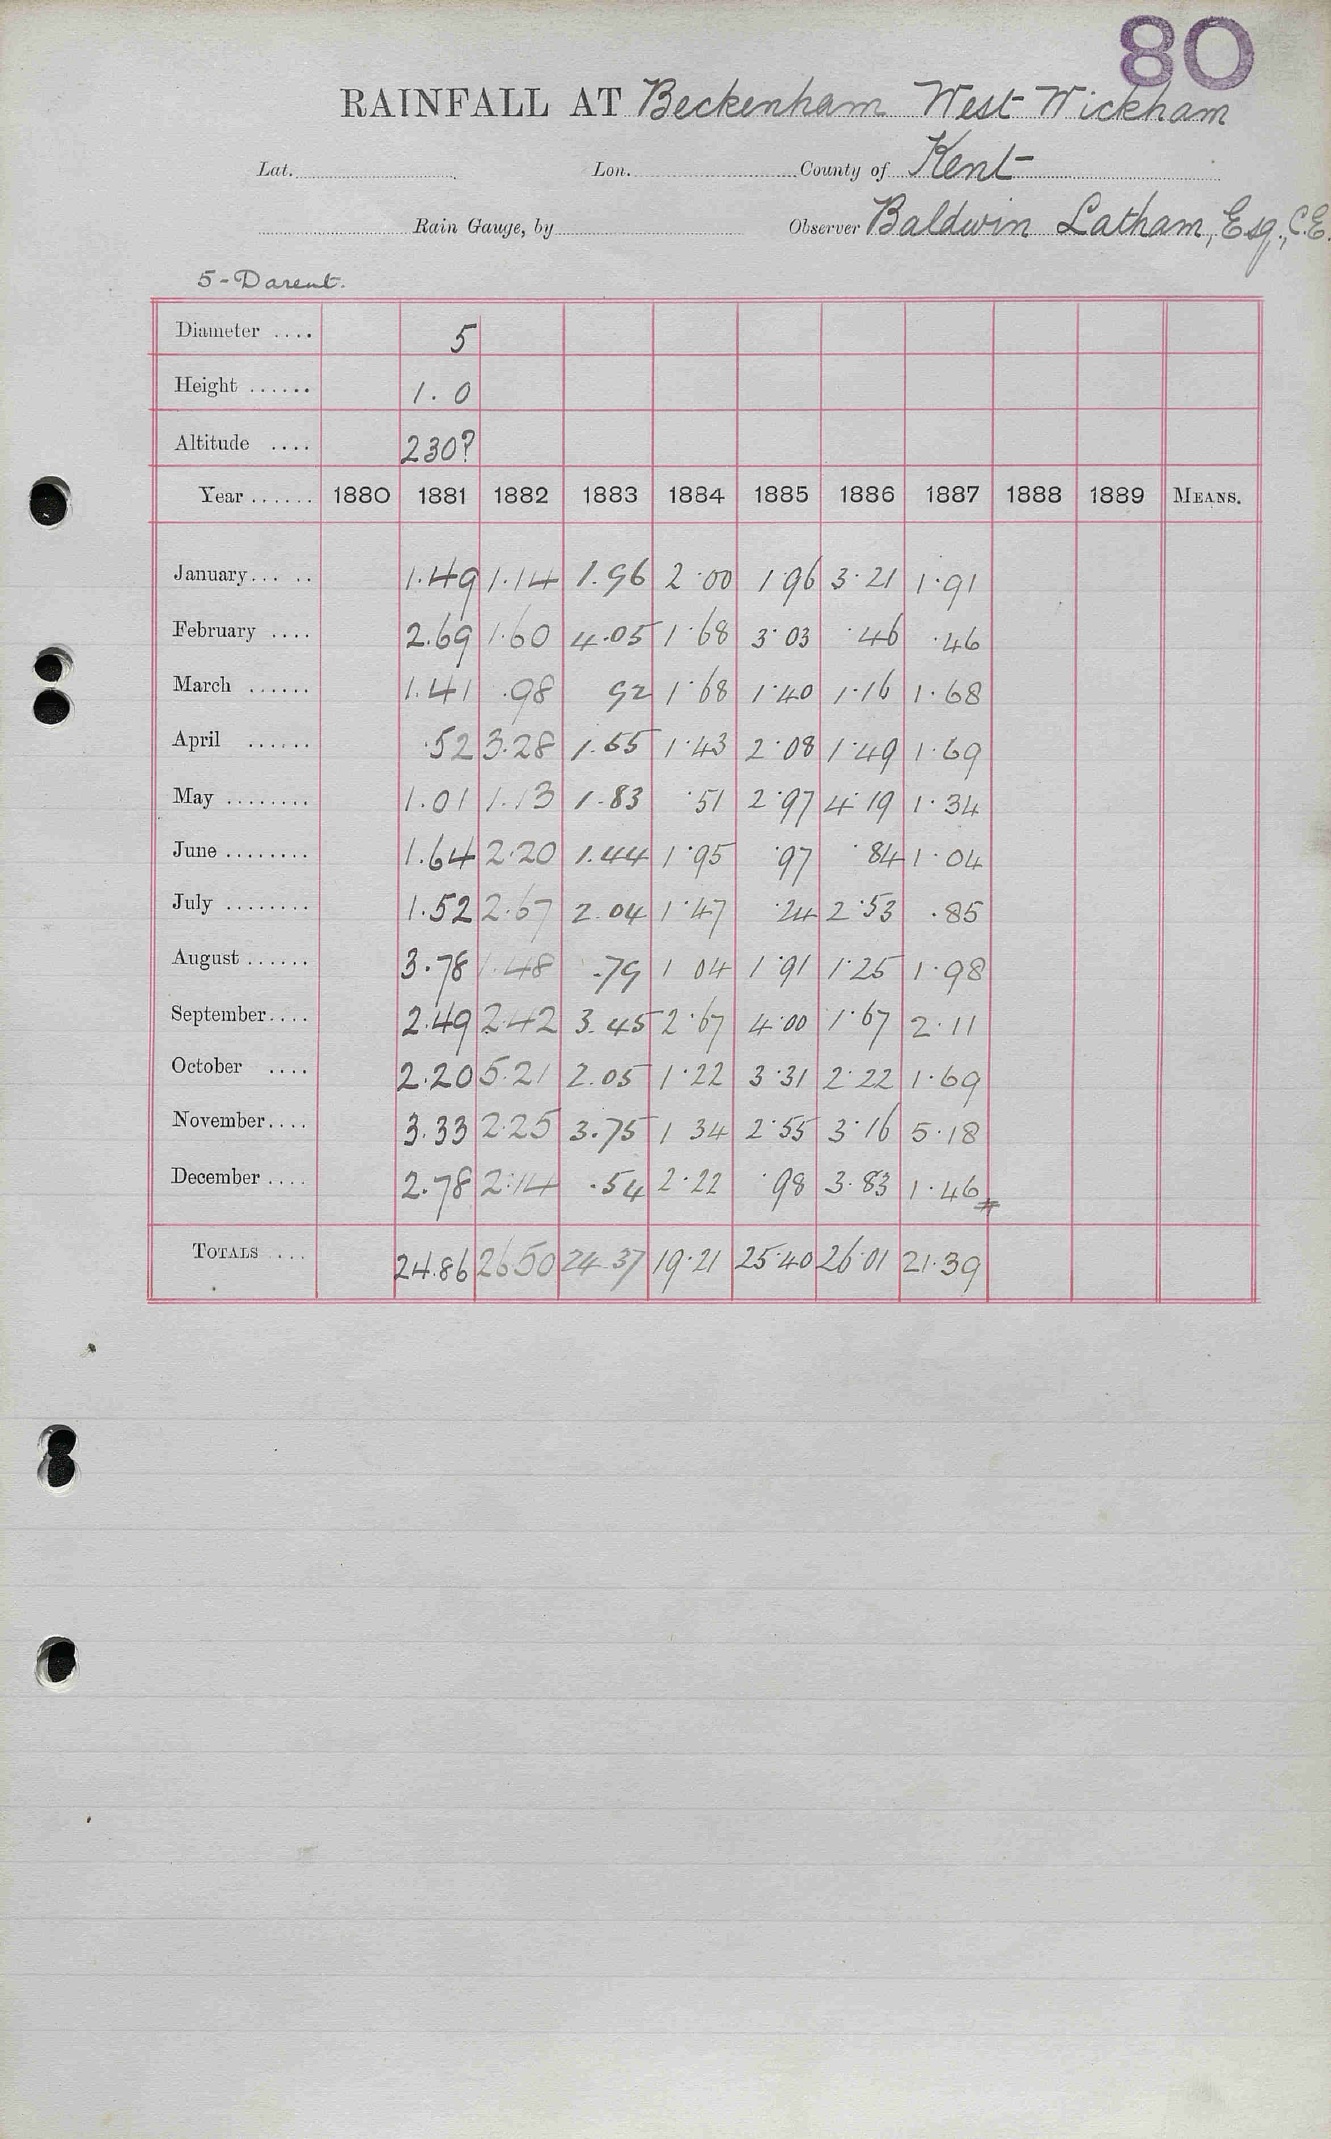 80
RAINFALL AT Beckenham West Wickham
Lat. Lon. County of Kent
Rain Gauge, by Observer Baldwin Latham, Esq., C.E.
5 - Darent.
Diameter .... 5
Height ...... 1.0
Altitude .... 230?
Year ...... 1880 1881 1882 1883 1884 1885 1886 1887 1888 1889 MEANS.
January... .. 1.49 1.14 1.96 2.00 1.96 3.21 1.91
February .... 2.69 1.60 4.05 1.68 3.03 .46 .46
March ...... 1.41 .98 92 1.68 1.40 1.16 1.68
April ...... .52 3.28 1.55 1.43 2.08 1.49 1.69
May ........ 1.01 1.13 1.83 .51 2.97 4.19 1.34
June ........ 1.64 2.20 1.44 1.95 .97 .84 1.04
July ........ 1.52 2.67 2.04 1.47 .24 2.53 .85
August ...... 3.78 1.48 .79 1 04 1.91 1.25 1.98
September.... 2.49 2.42 3.45 2.67 4.00 1.67 2.11
October .... 2.20 5.21 2.05 1.22 3.31 2.22 1.69
November.... 3.33 2.25 3.75 1 34 2.55 3.16 5.18
December .... 2.78 2.14 .54 2.22 .98 3.83 1.46
TOTALS .... 24.86 26 50 24.37 19.21 25.40 26.01 21.39